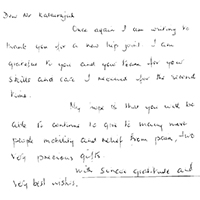 Dear Mr
Once again I am writing to
thank you for a new hip joint. I am
grateful to you and your team for your
skills and care I received for the second
time.
My wish is that you will be
able to continue to give to many more
people mobility and relief from pain, two
very precious gifts
with sincere gratitude and
very best wishes,